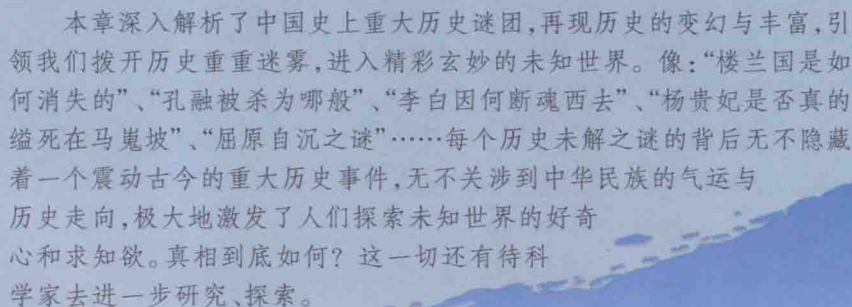 本章深入解析了中国史上重大历史谜团,再现历史的变幻与丰富,引
领我们拨开历史重重迷雾,进入精彩玄妙的未知世界。像:“楼兰国是如
何消失的”、“孔融被杀为哪般”、“李白因何断魂西去”、“杨贵妃是否真的
缢死在马嵬坡”、“屈原自沉之谜”……每个历史未解之谜的背后无不隐藏
着一个震动古今的重大历史事件,无不关涉到中华民族的气运与
历史走向,极大地激发了人们探索未知世界的好奇
心和求知欲。真相到底如何? 这一切还有待科
学家去进一步研究、探索。